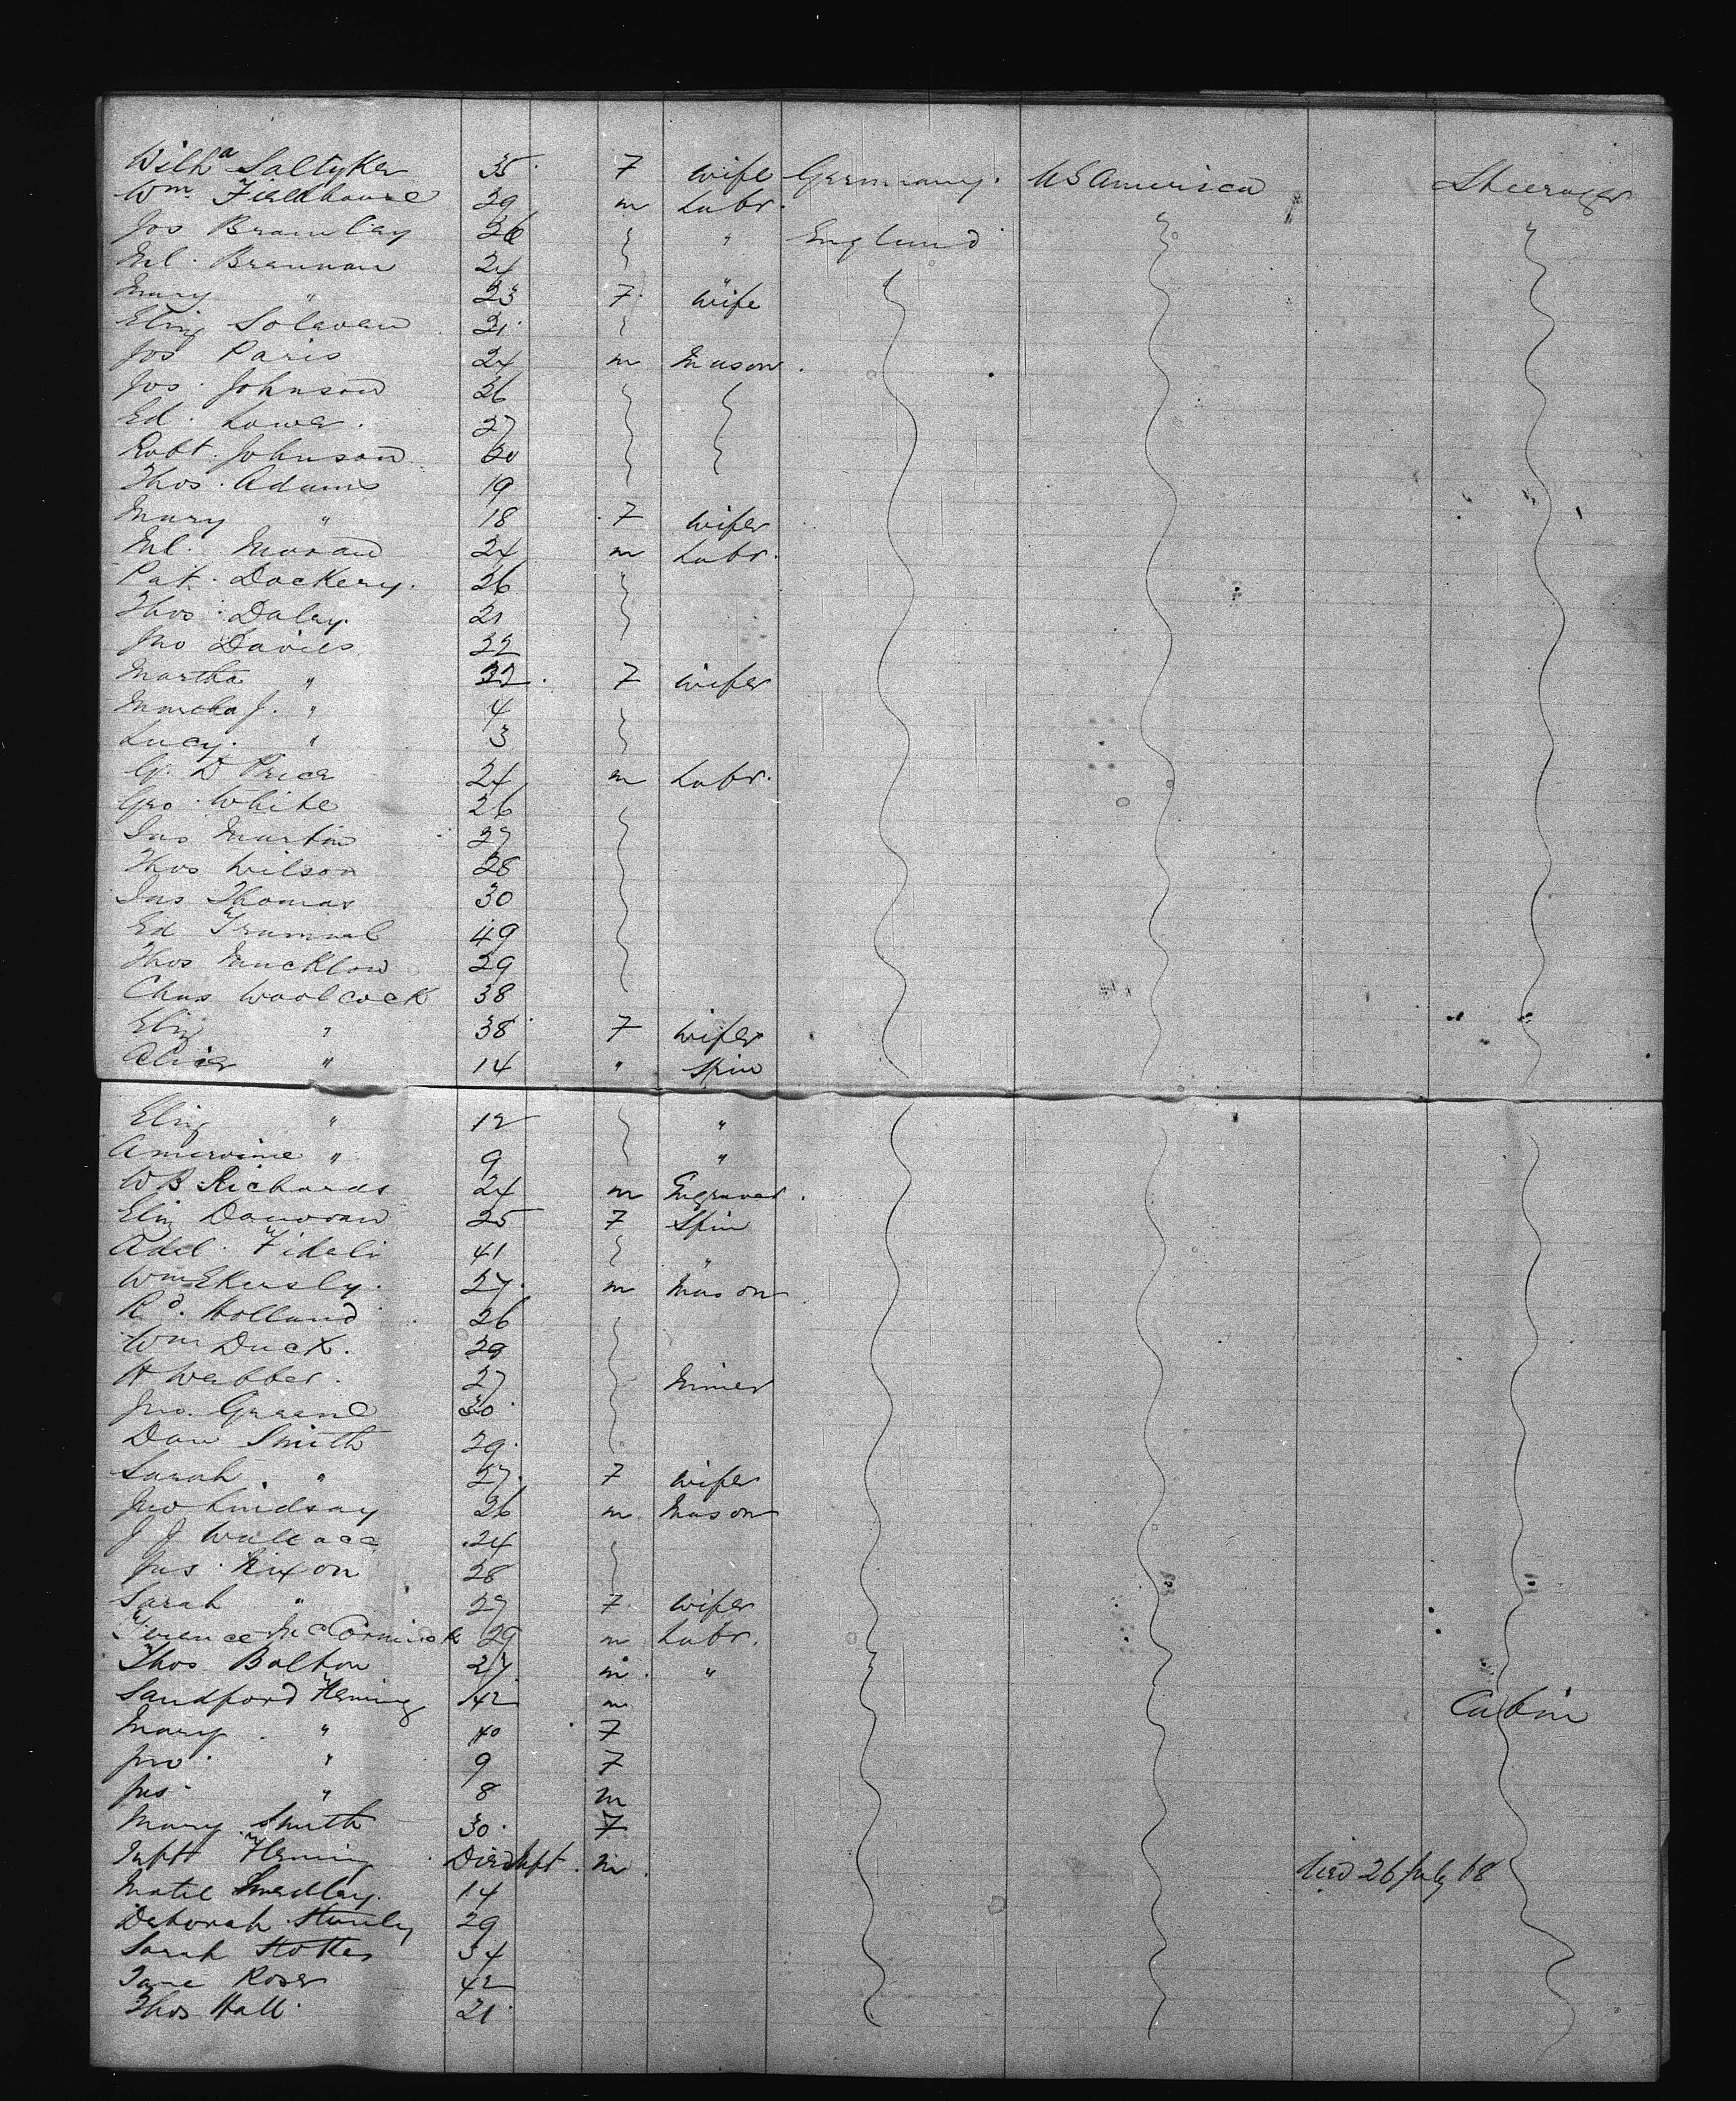 Wilh<sup>a</sup> Saltyker 35 F wife Germany. US America Steerage
Wm. Fieldhouse 29 m Labr.
Jos Bramley 26 " England
Ml. Brannan 24
Mary " 23 F wife
Eliz Solavan 21
Jos Paris 24 m Mason.
Jos. Johnson 26
Ed. Lowe. 27
Robt. Johnson 20
Thos. Adams 19
Mary " 18 F wife
Ml. Moran 24 m Labr.
Pat. Dockery. 26
Thos. Daley. 21
Jno Davies 32
Martha " 32. F wife
Martha J. " 4
Lucy. " 3
G. D Price 24 m Labr.
Geo. White 26
Jas Martin 27
Thos Wilson 28
Jas Thomas 30
Ed 49
Thos Mucklow 29
Chas Woolcock 38
Eliz " 38 F wife
Alice " 14 " Spin
Eliz " 12 "
" 9 "
W B Richards 24 m Engraver.
Eliz Donovan 25 F Spin
Adel. Fideli 41 "
Wm Ekersly. 27. m Mason
Rd. Holland 26
Wm Duck. 29
H Webber. 27 Miner
Jno. Greene 30
Dan Smith 29.
Sarah. " 27. F wife
Jno Lindsay 26 m Mason
J J Wallace 24
Jas. Nixon 28
Sarah " 27 F wife
Terence McCormick 29 m Labr.
Thos Bolton 27 m. "
Sandford Fleming 42 m Cabin
Mary. " 40 F
Jno. " 9 F
Jas. " 8 m
Mary Smith 30. F
Inft Fleming Died Inft. m. died 26 July 68
Matil Smedley. 14
Deborah Stanly 29
Sarah Stokes 34
Jane Rose 42
Thos Hall. 21.